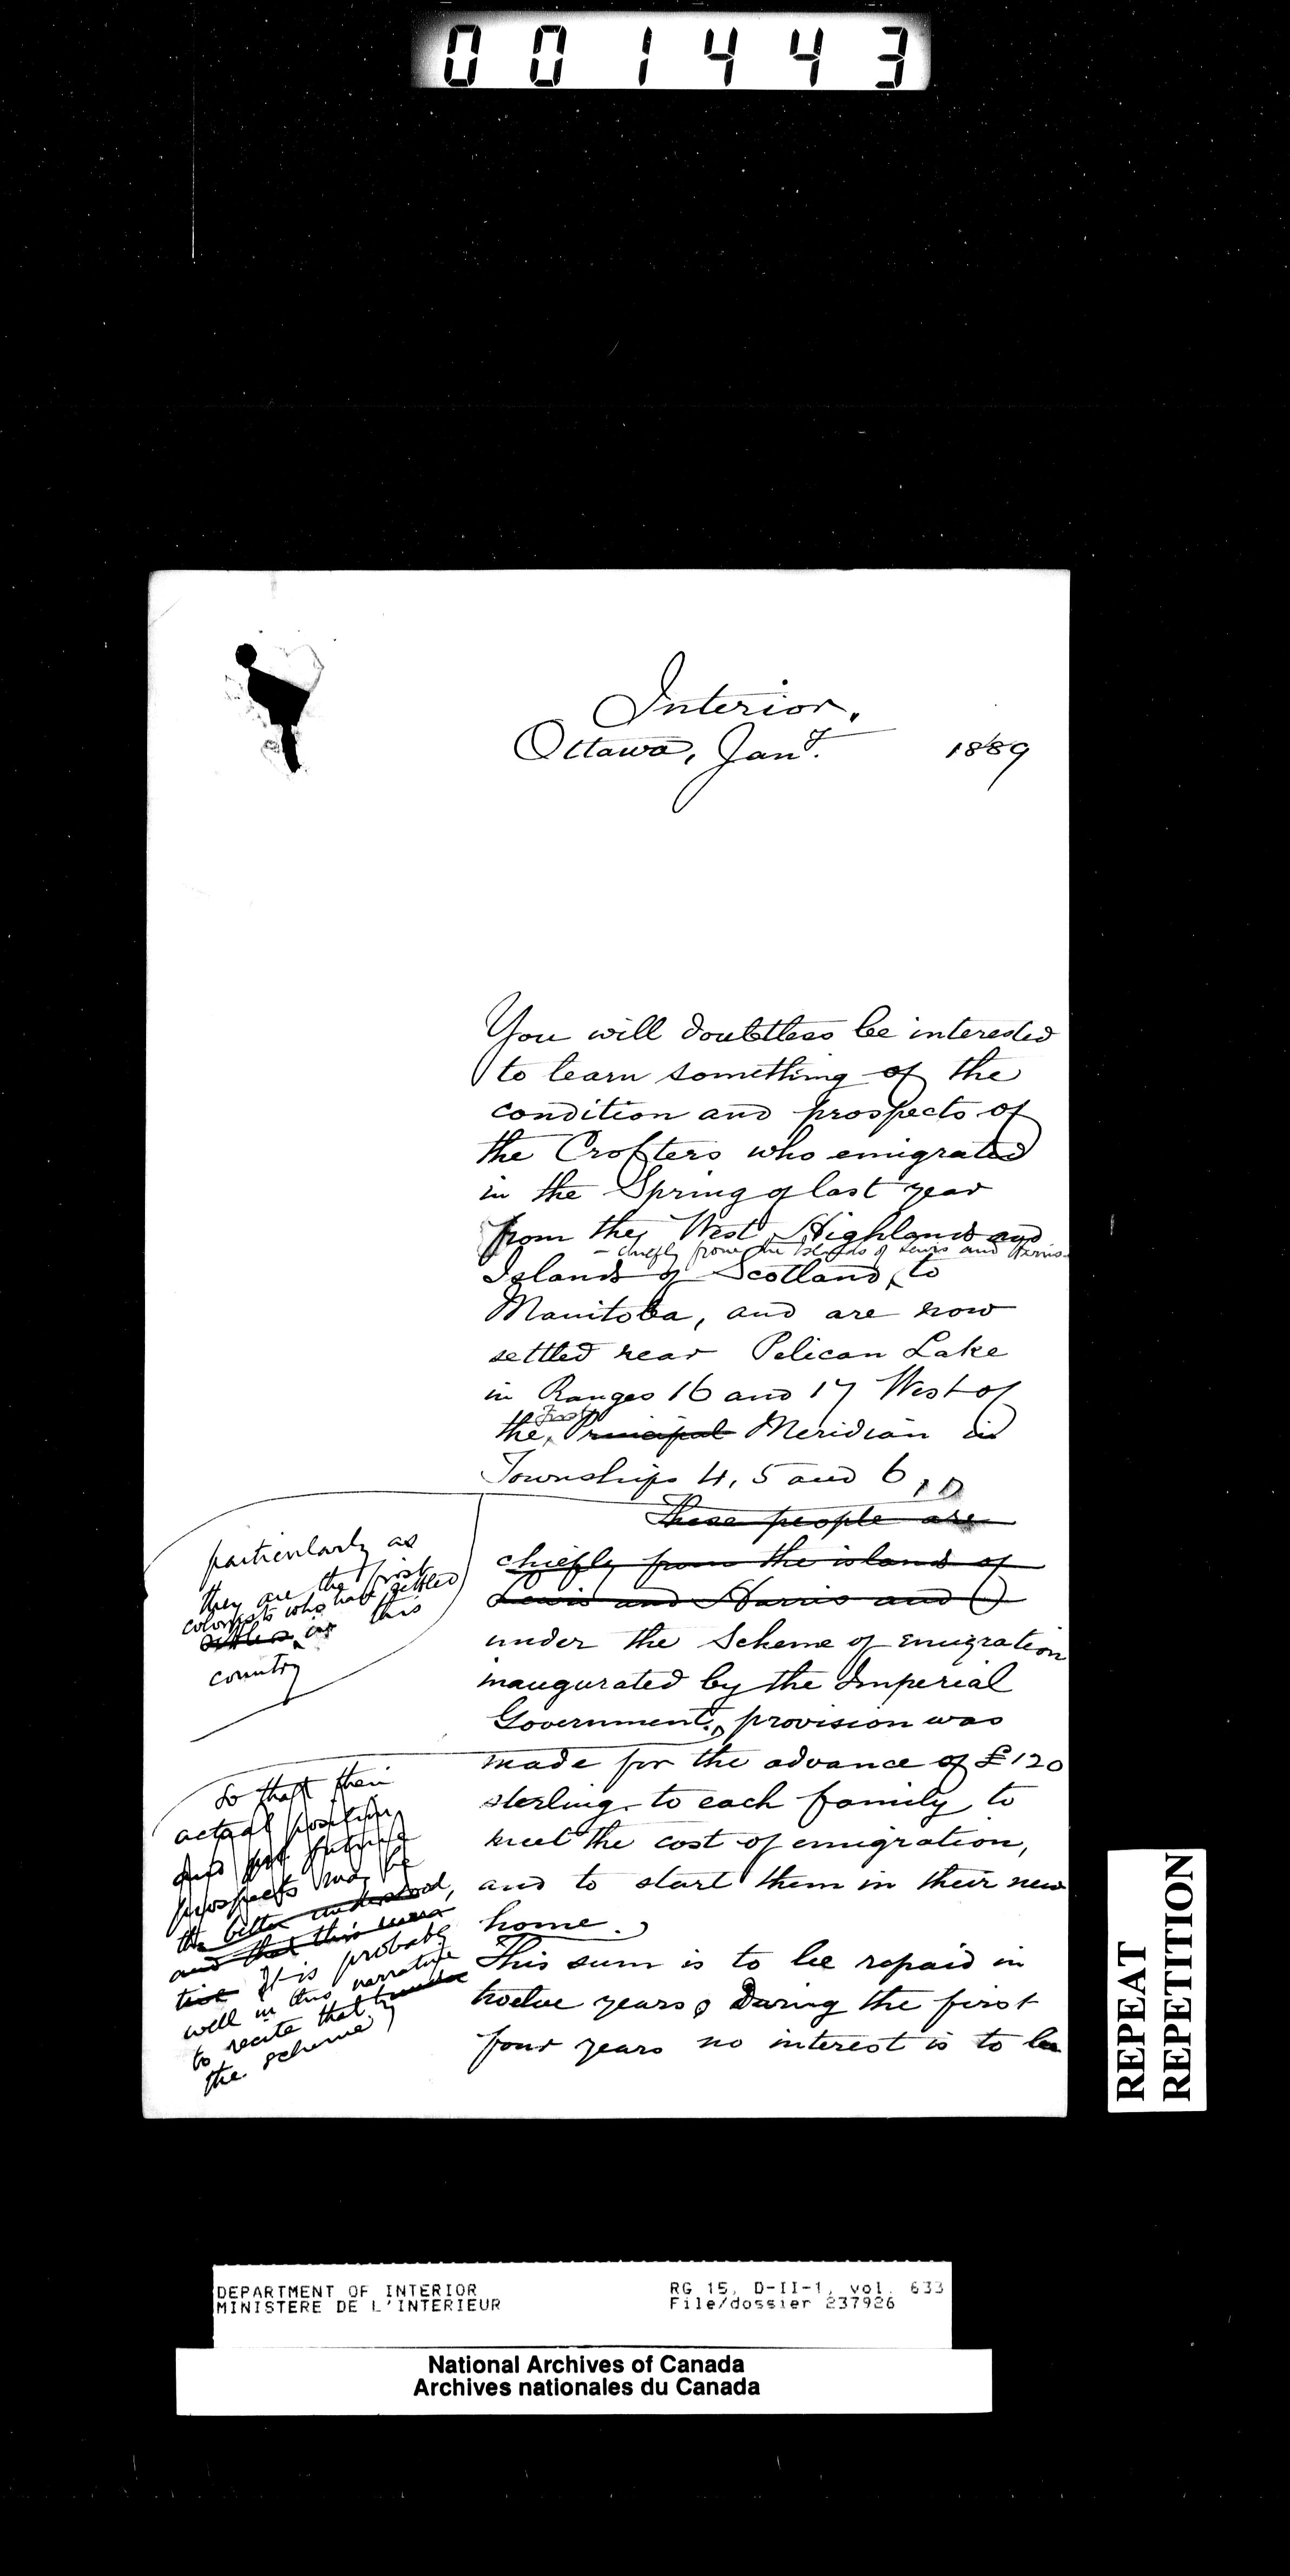 001443
Interior,
Ottawa, Jany. 1889
You will doubtless be interested
to learn something of the
condition and prospects of
the Crofters who emigrated
in the Spring of last year
from the West Highlands and
- chiefly from the Islands of Lewis and Harris -
Islands of Scotland, to
Manitoba, and are now
settled near Pelican Lake
in Ranges 16 and 17 West of
First
the Principal Meridian in
Townships 4, 5 and 6,
These people are
chiefly from the island of
Lewis and Harris and
particularly as
they are the first
colonists who have settled
settlers in this
country
under the Scheme of emigration
inaugurated by the Imperial
Government, provision was
made for the advance of £120
sterling to each family to
meet the cost of emigration,
and to start them in their new
home.
So that their
actual position
and future
prospects may be
the better understood,
and that this
It is probably
well in this narrative
to recite that by
the scheme
This sum is to be repaid in
twelve years, During the first
four years no interest is to be
REPEAT
REPETITION
DEPARTMENT OF INTERIOR RG 15, D-II-1, vol. 633
MINISTERE DE L'INTERIEUR File/dossier 237926
National Archives of Canada
Archives nationales du Canada